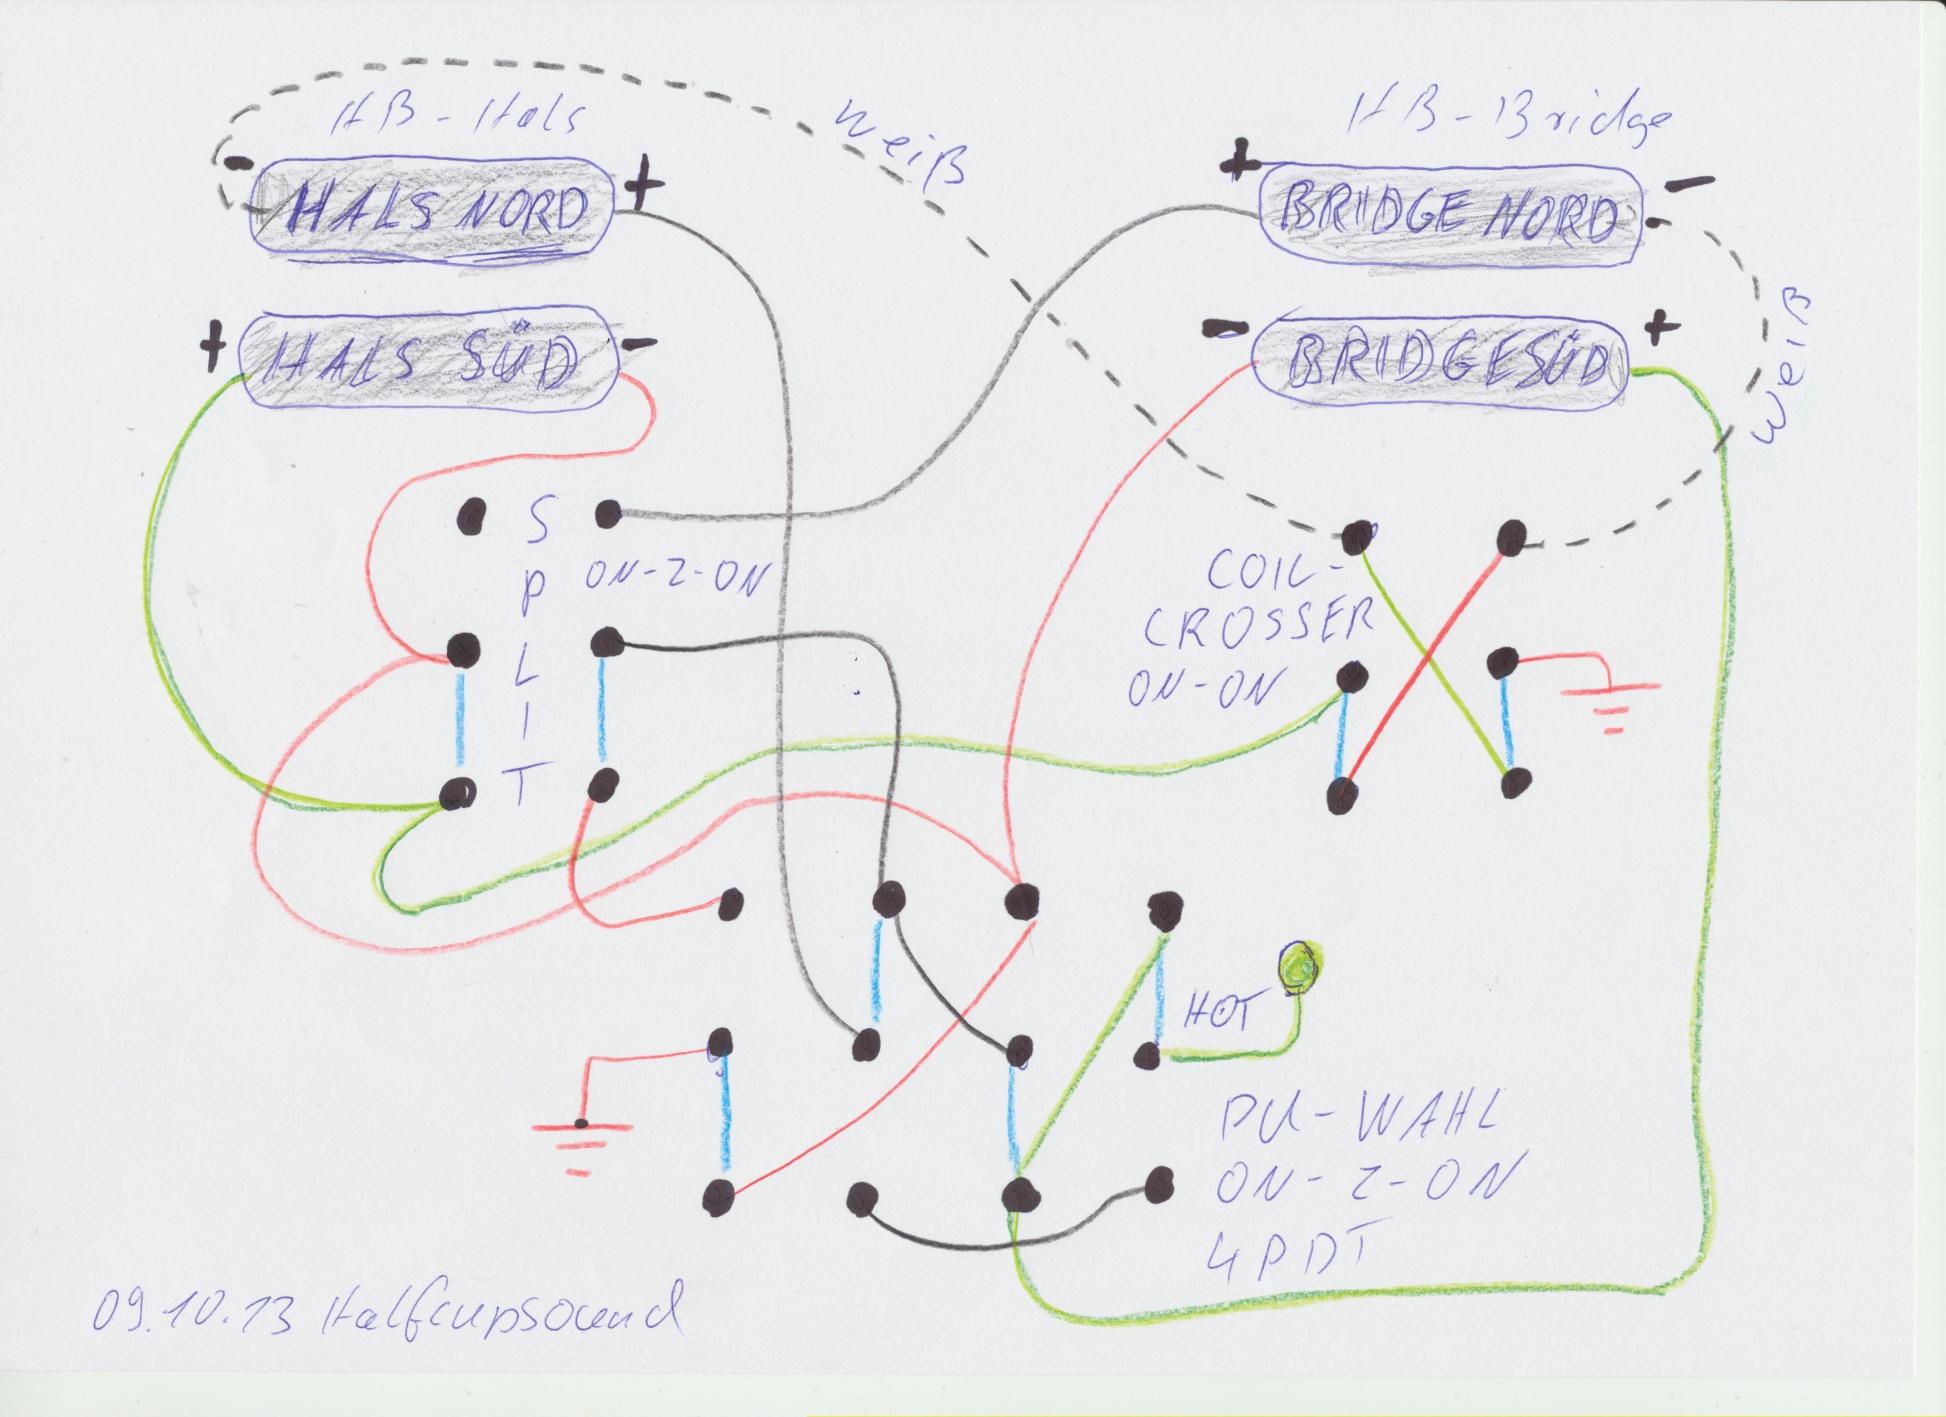 HB-Hals
weiß
HB-Bridge
- +
HALS NORD
+ -
BRIDGE NORD
+ -
HALS SÜD
- +
BRIDGE SÜD
weiß
S
P
L
I
T
ON-2-ON
COIL-
CROSSER
ON-ON
HOT
PU-WAHL
ON-2-ON
4PDT
09.10.13 Halfcupsound